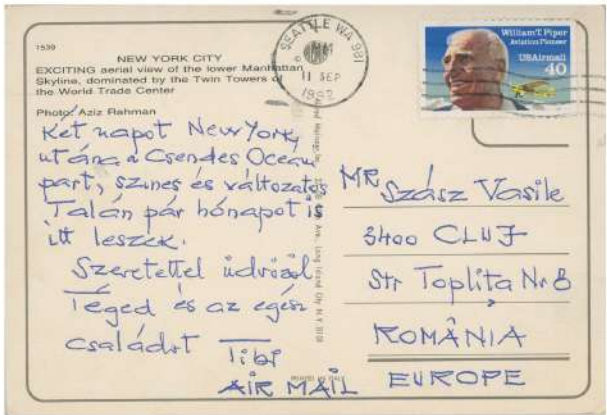 1539
NEW YORK CITY
EXCITING aerial view of the lower Manhattan
Skyline, dominated by the Twin Towers of
the World Trade Center
Photo: Aziz Rahman
SEATTLE WA 981
PM
11 SEP
1992
William T. Piper
Aviation Pioneer
USAirmail
40
Két napot New York,
utána a Csendes Óceán
part, szines és változatos
Talán pár hónapot is
itt leszek.
Szeretettel üdvözöl
Téged és az egész
családot Tibi
AIR MAIL
MR Szász Vasile
3400 CLUJ
Str Toplita Nr 8
ROMÂNIA
EUROPE